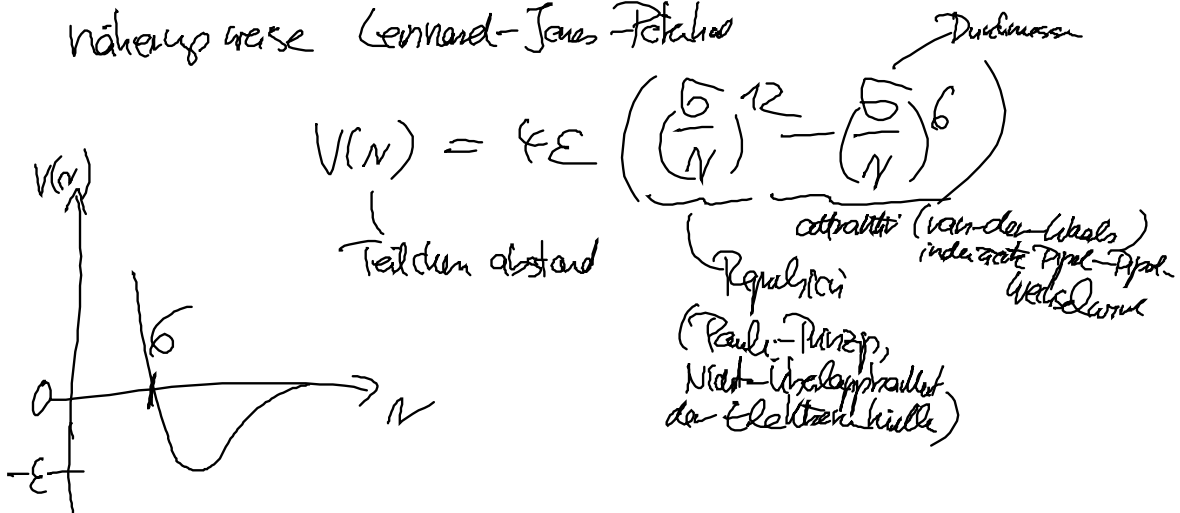 näherungsweise Lennard-Jones-Potential
Durchmesser
V(r) = 4ε ((σ/r)^12 - (σ/r)^6)
V(r)
Teilchenabstand
attraktiv (van-der-Waals)
induzierte Dipol-Dipol-
Wechselwirk
Repulsion
(Pauli-Prinzip,
Nicht-Überlappbarkeit
der Elektronenhülle)
σ
0
r
-ε